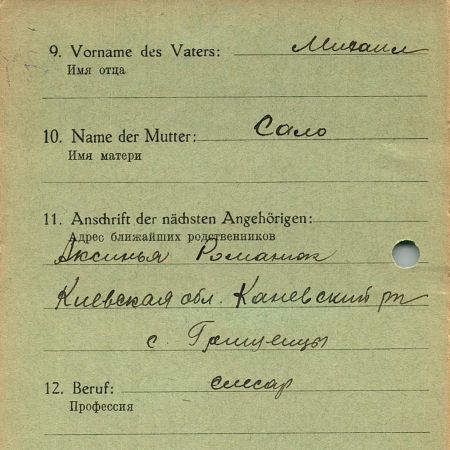 9. Vorname des Vaters: Михаил
Имя отца
10. Name der Mutter: Сало
Имя матери
11. Anschrift der nächsten Angehörigen:
Адрес ближайших родственников
Аксинья Романюк
Киевская обл. Каневский рн
с. Грищенцы
12. Beruf: слесар
Профессия